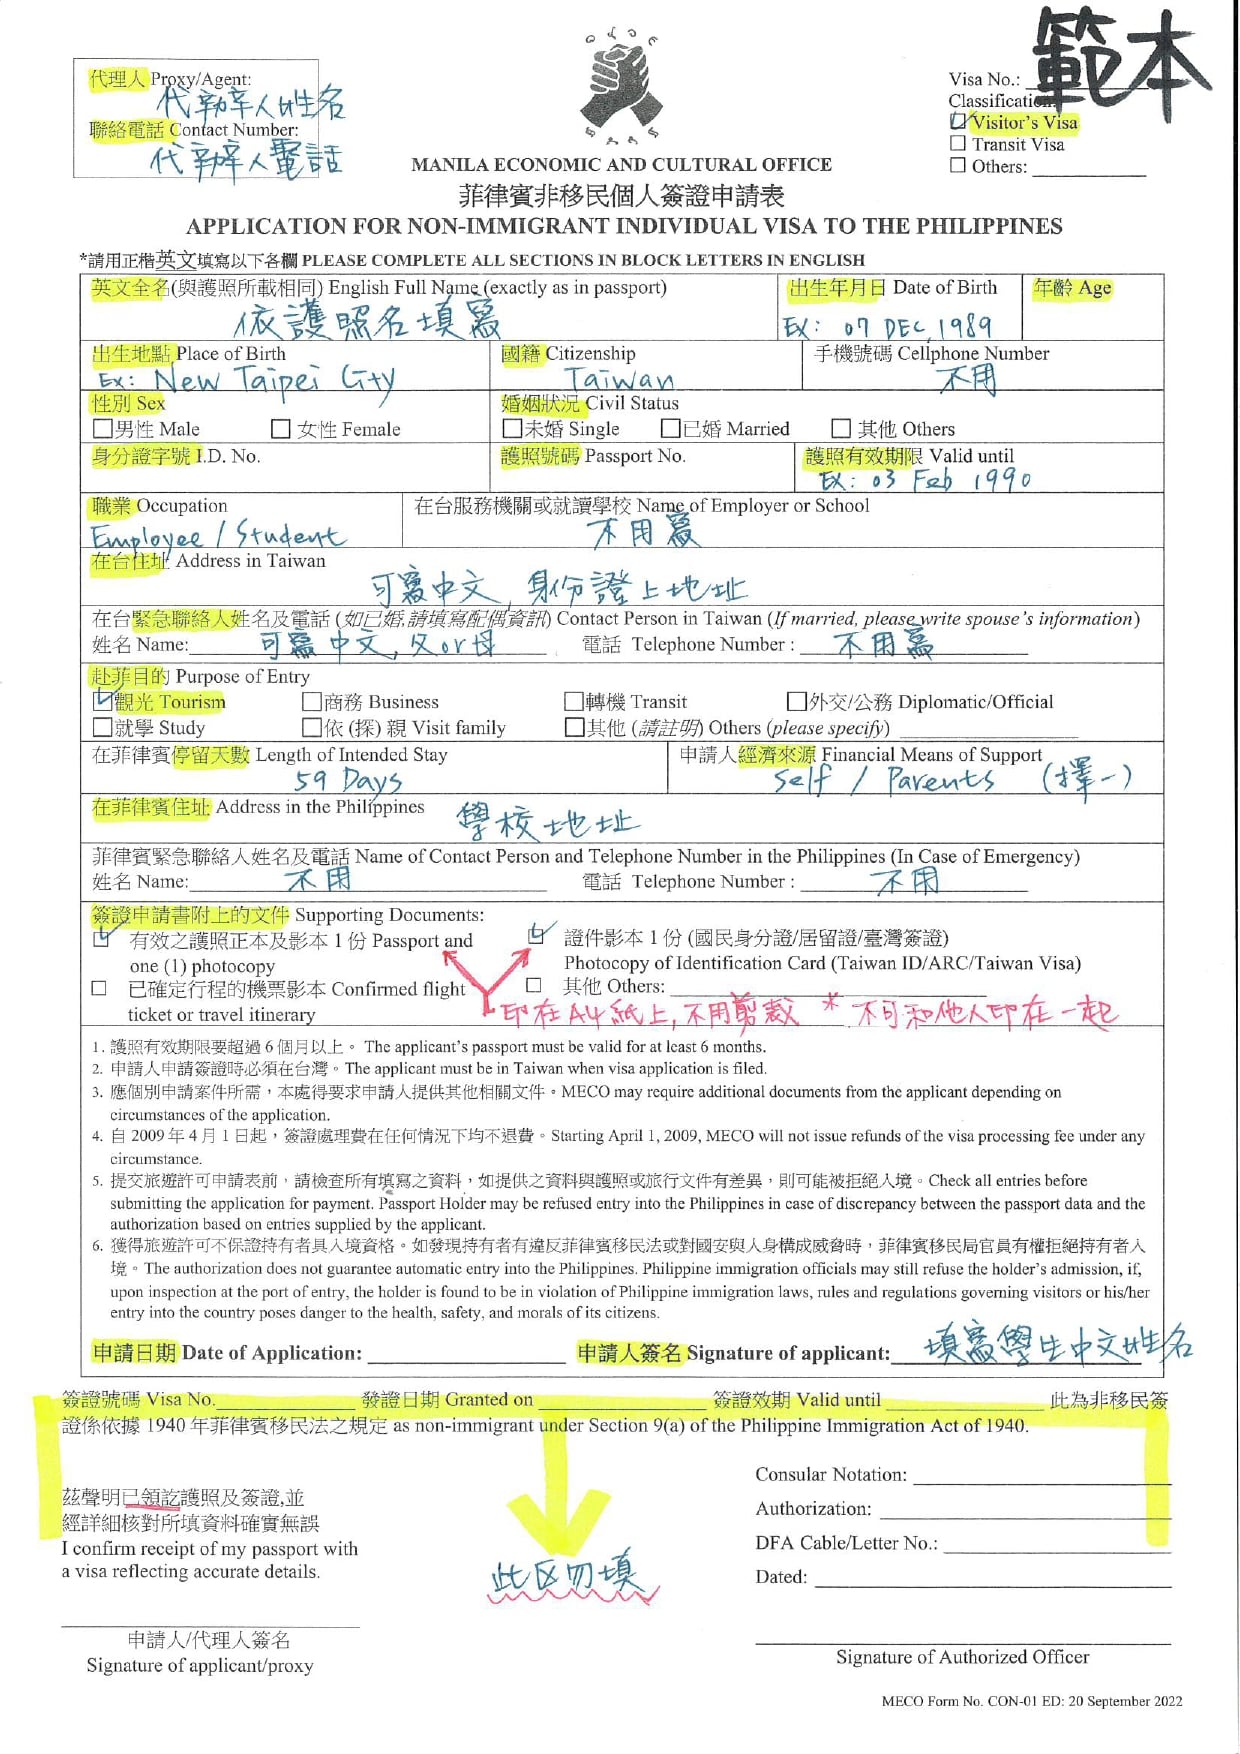 範本
代理人 Proxy/Agent:
代辦人姓名
聯絡電話 Contact Number:
代辦人電話
Visa No.:
Classification
Visitor's Visa
Transit Visa
Others:
MANILA ECONOMIC AND CULTURAL OFFICE
菲律賓非移民個人簽證申請表
APPLICATION FOR NON-IMMIGRANT INDIVIDUAL VISA TO THE PHILIPPINES
*請用正楷英文填寫以下各欄 PLEASE COMPLETE ALL SECTIONS IN BLOCK LETTERS IN ENGLISH
英文全名(與護照所載相同) English Full Name (exactly as in passport) 出生年月日 Date of Birth 年齡 Age
依護照名填寫 Ex: 07 DEC, 1989
出生地點 Place of Birth 國籍 Citizenship 手機號碼 Cellphone Number
Ex: New Taipei City Taiwan 不用
性別 Sex 婚姻狀況 Civil Status
男性 Male 女性 Female 未婚 Single 已婚 Married 其他 Others
身分證字號 I.D. No. 護照號碼 Passport No. 護照有效期限 Valid until
Ex: 03 Feb 1990
職業 Occupation 在台服務機關或就讀學校 Name of Employer or School
Employee / Student 不用寫
在台住址 Address in Taiwan
可寫中文, 身份證上地址
在台緊急聯絡人姓名及電話 (如已婚,請填寫配偶資訊) Contact Person in Taiwan (If married, please write spouse's information)
姓名 Name: 可寫中文, 父or母 電話 Telephone Number : 不用寫
赴菲目的 Purpose of Entry
觀光 Tourism 商務 Business 轉機 Transit 外交/公務 Diplomatic/Official
就學 Study 依 (探) 親 Visit family 其他 (請註明) Others (please specify)
在菲律賓停留天數 Length of Intended Stay 申請人經濟來源 Financial Means of Support
59 Days Self / Parents (擇一)
在菲律賓住址 Address in the Philippines
學校地址
菲律賓緊急聯絡人姓名及電話 Name of Contact Person and Telephone Number in the Philippines (In Case of Emergency)
姓名 Name: 不用 電話 Telephone Number : 不用
簽證申請書附上的文件 Supporting Documents:
有效之護照正本及影本 1 份 Passport and 證件影本 1 份 (國民身分證/居留證/臺灣簽證)
one (1) photocopy Photocopy of Identification Card (Taiwan ID/ARC/Taiwan Visa)
已確定行程的機票影本 Confirmed flight 其他 Others:
ticket or travel itinerary 印在A4紙上,不用剪裁 * 不可和他人印在一起
1. 護照有效期限要超過 6 個月以上。 The applicant's passport must be valid for at least 6 months.
2. 申請人申請簽證時必須在台灣。The applicant must be in Taiwan when visa application is filed.
3. 應個別申請案件所需,本處得要求申請人提供其他相關文件。MECO may require additional documents from the applicant depending on
circumstances of the application.
4. 自 2009 年 4 月 1 日起,簽證處理費在任何情況下均不退費。Starting April 1, 2009, MECO will not issue refunds of the visa processing fee under any
circumstance.
5. 提交旅遊許可申請表前,請檢查所有填寫之資料,如提供之資料與護照或旅行文件有差異,則可能被拒絕入境。Check all entries before
submitting the application for payment. Passport Holder may be refused entry into the Philippines in case of discrepancy between the passport data and the
authorization based on entries supplied by the applicant.
6. 獲得旅遊許可不保證持有者具入境資格。如發現持有者有違反菲律賓移民法或對國安與人身構成威脅時,菲律賓移民局官員有權拒絕持有者入
境。The authorization does not guarantee automatic entry into the Philippines. Philippine immigration officials may still refuse the holder's admission, if,
upon inspection at the port of entry, the holder is found to be in violation of Philippine immigration laws, rules and regulations governing visitors or his/her
entry into the country poses danger to the health, safety, and morals of its citizens.
申請日期 Date of Application: 申請人簽名 Signature of applicant: 填寫學生中文姓名
簽證號碼 Visa No. 發證日期 Granted on 簽證效期 Valid until 此為非移民簽
證係依據 1940 年菲律賓移民法之規定 as non-immigrant under Section 9(a) of the Philippine Immigration Act of 1940.
茲聲明已領訖護照及簽證,並
經詳細核對所填資料確實無誤
I confirm receipt of my passport with
a visa reflecting accurate details.
此区勿填
Consular Notation:
Authorization:
DFA Cable/Letter No.:
Dated:
申請人/代理人簽名
Signature of applicant/proxy
Signature of Authorized Officer
MECO Form No. CON-01 ED: 20 September 2022